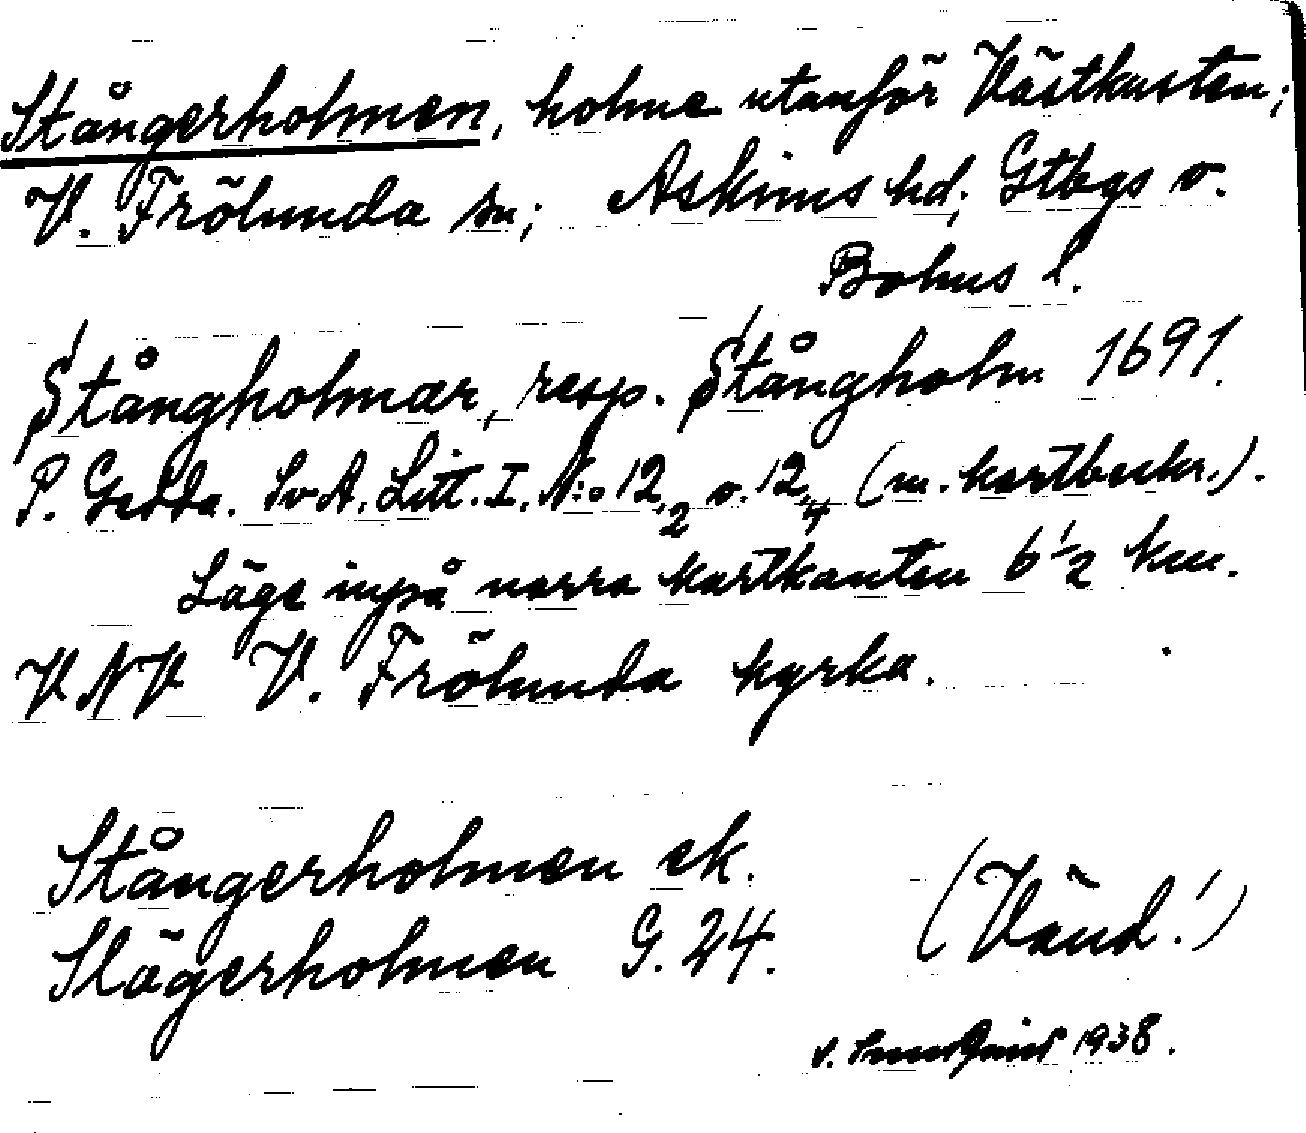 Stångerholmen, holme utanför Västkusten;
V. Frölunda sn; Askims hd; Gtbgs o.
Bohus l.
Stångholmar, resp. Stångholm 1691.
P. Gedda. SvA. Litt. I. N:o 12,2 o. 12,4 (m. kartbeskr.).
Läge inpå norra kartkanten 6 1/2 km.
VNV V. Frölunda kyrka.
Stångerholmen ek.
Slägerholmen G. 24.
(Vänd!)
1938.